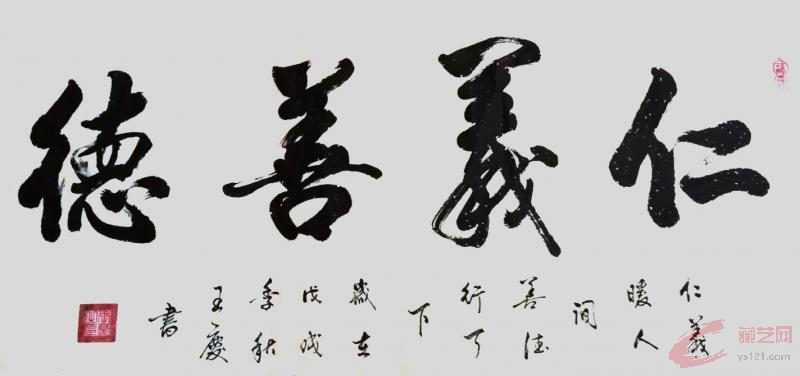 仁義善德
仁義
暖人
间
善德
行
下
歲在
戊戌
季秋
王慶
書
藏艺网
ys121.com